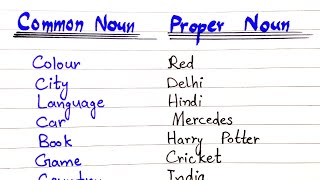 Common Noun Proper Noun
Colour Red
City Delhi
Language Hindi
Car Mercedes
Book Harry Potter
Game Cricket
Country India